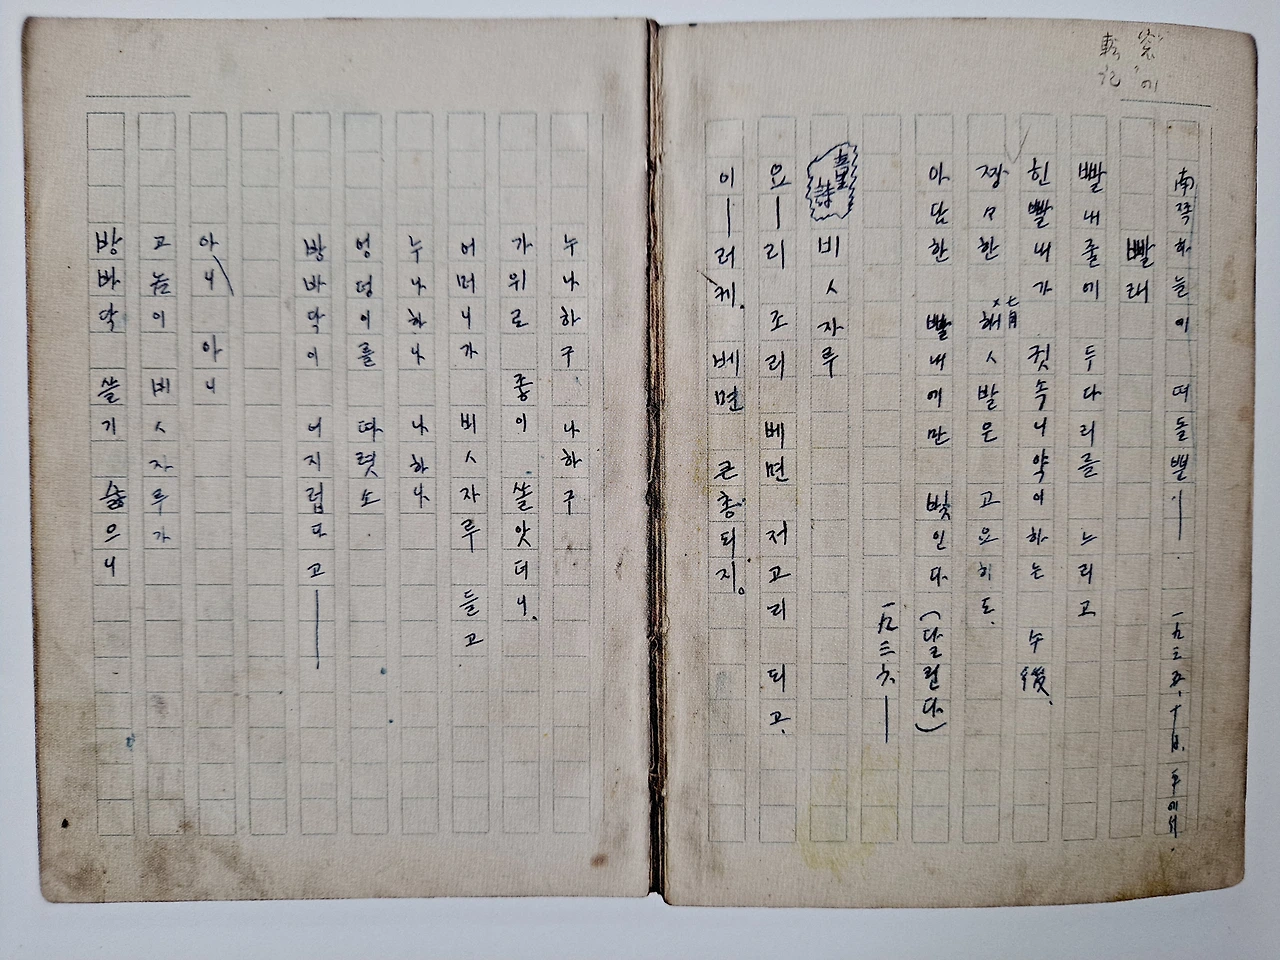 窓에
轉記
南쪽하늘이 떠돌뿐ㅣ——. 一九三五、十月、平에서
빨래
빨내줄에 두다리를 느리고
힌빨내가 귓속니약이하는 午後、
짱々한 七月햇ㅅ발은 고요히도、
아담한 빨내에만 빛인다 (달린다)
一九三六、——
童詩 비ㅅ자루
요—리 조리 베면 저고리 되고、
이—러케、 베면 큰총되지。
누나하구 나하구
가위로 종이 쏠앗더니、
어머니가 비ㅅ자루 들고
누나하나 나하나
엉덩이를 따렷소
방바닥이 너지럽다고——
아니 아니
고놈이 비ㅅ자루가
방바닥 쓸기 슳으니